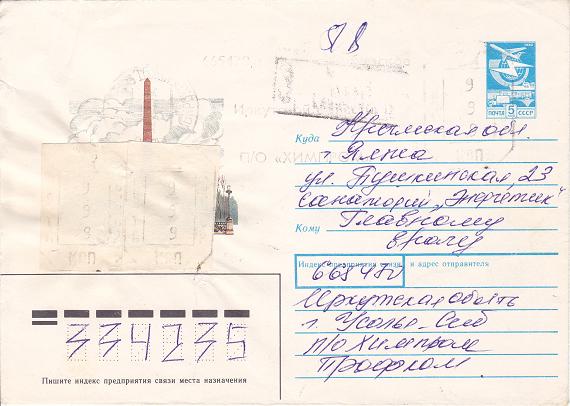 ЯВ
ПОЧТА 5 СССР
Куда Крымская обл.
г. Ялта
ул. Пушкинская 23
Санаторий „Энергетик“
Кому Главному
врачу
Индекс предприятия связи и адрес отправителя
Иркутская область
г. Усолье-Сиб
п/о Химпром
Профком
334235
Пишите индекс предприятия связи места назначения